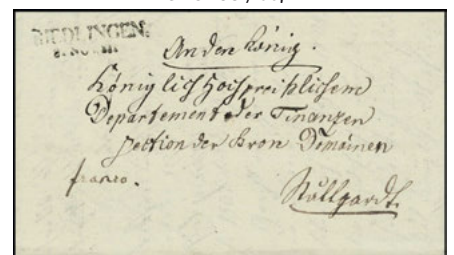 RIEDLINGEN.
An den König.
Königlich Hochpreißlichem
Departement der Finanzen
Section der Kron Domainen
franco.
Stuttgardt.